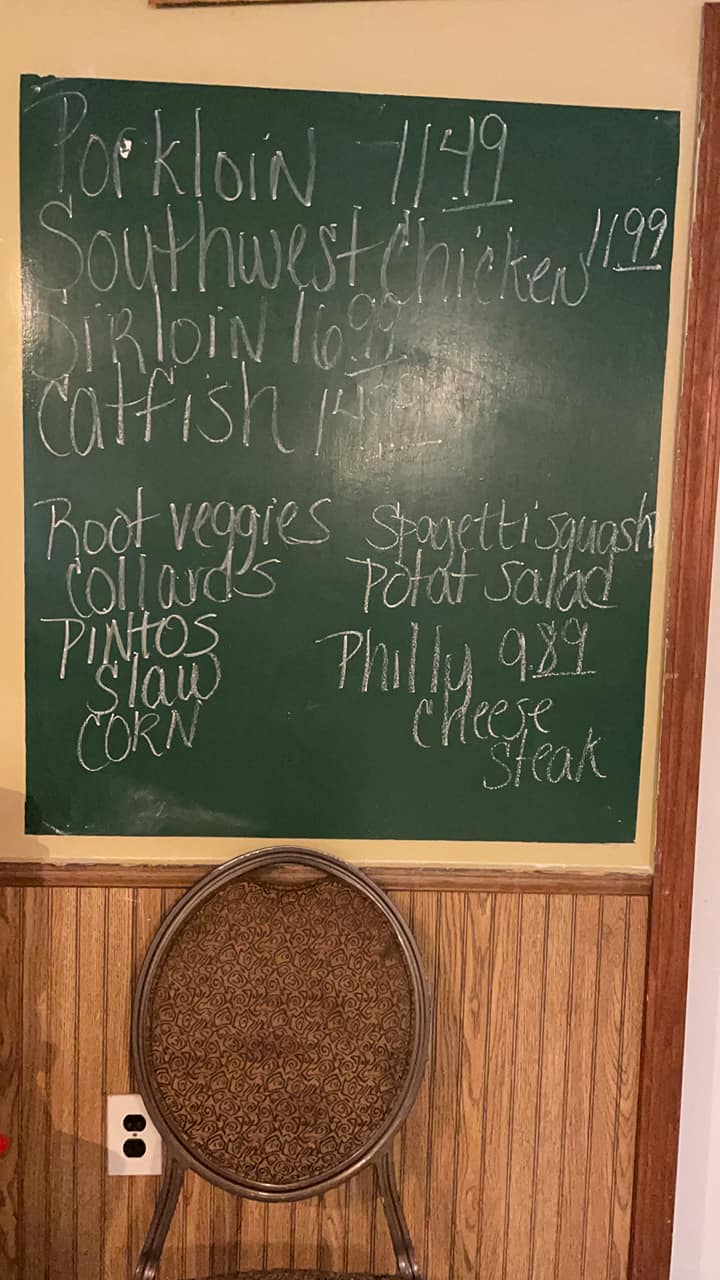 Porkloin 11.49
Southwest Chicken 11.99
Sirloin 16.99
Catfish 14.99
Root veggies
Collards
Pintos
Slaw
CORN
Spagetti squash
Potat Salad
Philly 9.89
Cheese
Steak